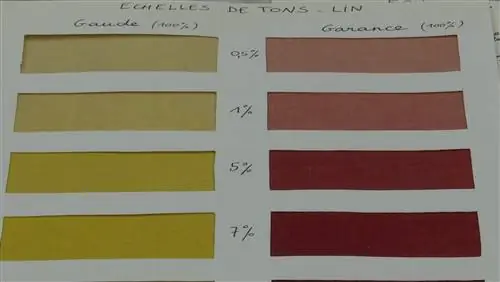 ECHELLES DE TONS - LIN
Gaude (100%) Garance (100%)
0,5%
1%
5%
7%